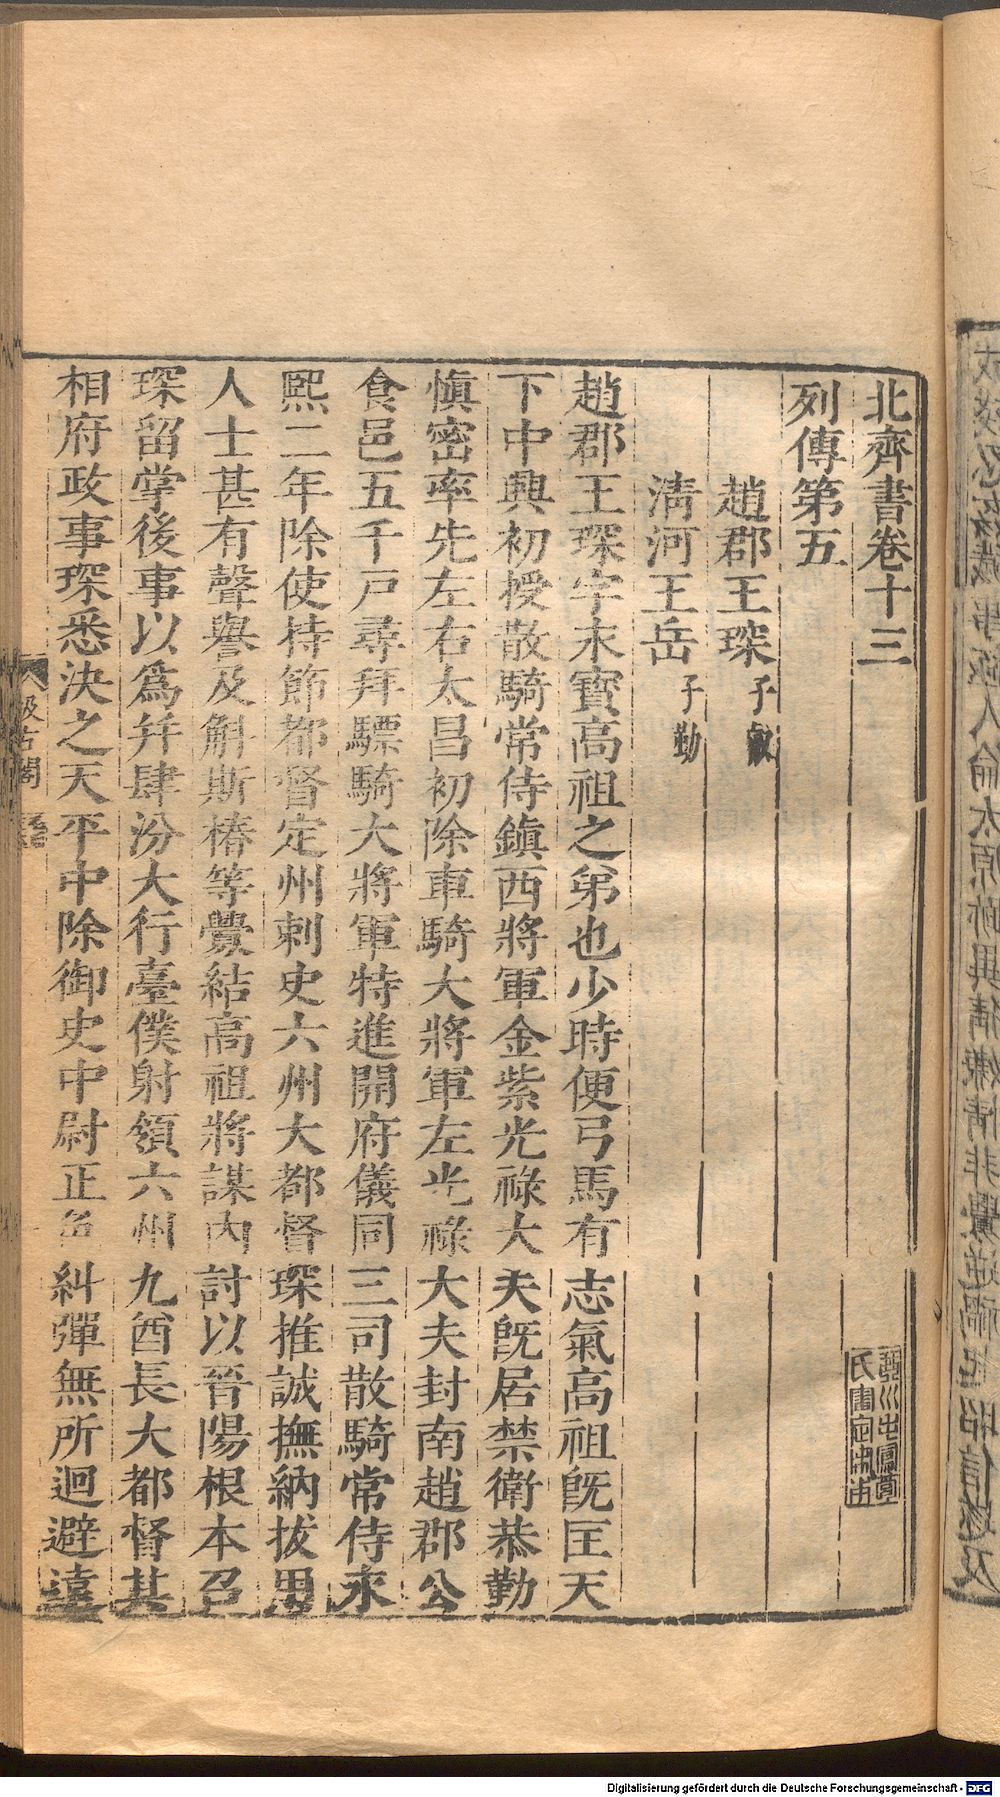 北齊書卷十三
列傳第五
趙郡王琛 子叡
淸河王岳 子勱
趙郡王琛字永寶高祖之弟也少時便弓馬有志氣高祖旣匡天
下中興初授散騎常侍鎭西將軍金紫光祿大夫旣居禁衛恭勤
愼密率先左右太昌初除車騎大將軍左光祿大夫封南趙郡公
食邑五千戶尋拜驃騎大將軍特進開府儀同三司散騎常侍永
熙二年除使持節都督定州刺史六州大都督琛推誠撫納拔用
人士甚有聲譽及斛斯椿等釁結高祖將謀內討以晉陽根本召
琛留掌後事以爲幷肆汾大行臺僕射領六州九酋長大都督其
相府政事琛悉決之天平中除御史中尉正色糾彈無所迴避遠
汲古閣
Digitalisierung gefördert durch die Deutsche Forschungsgemeinschaft - DFG